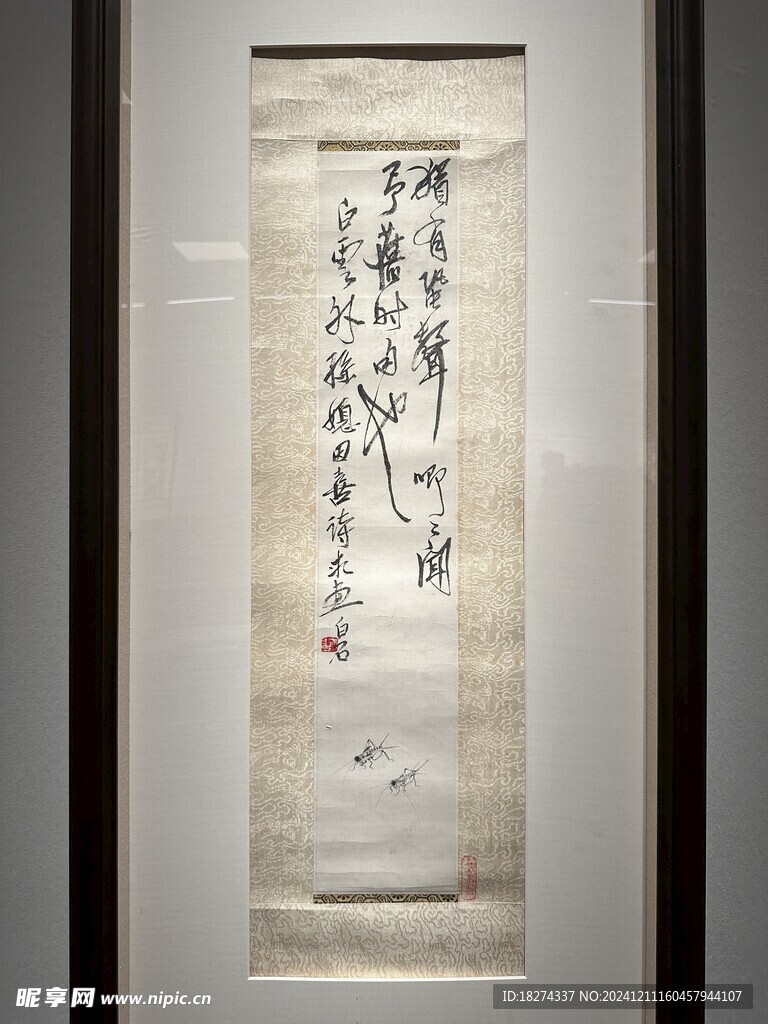 猶有蛩聲唧〻聞
予舊时句也
白雲外孫媳田喜詩求畫 白石
昵享网 www.nipic.cn
ID:18274337 NO:20241211160457944107